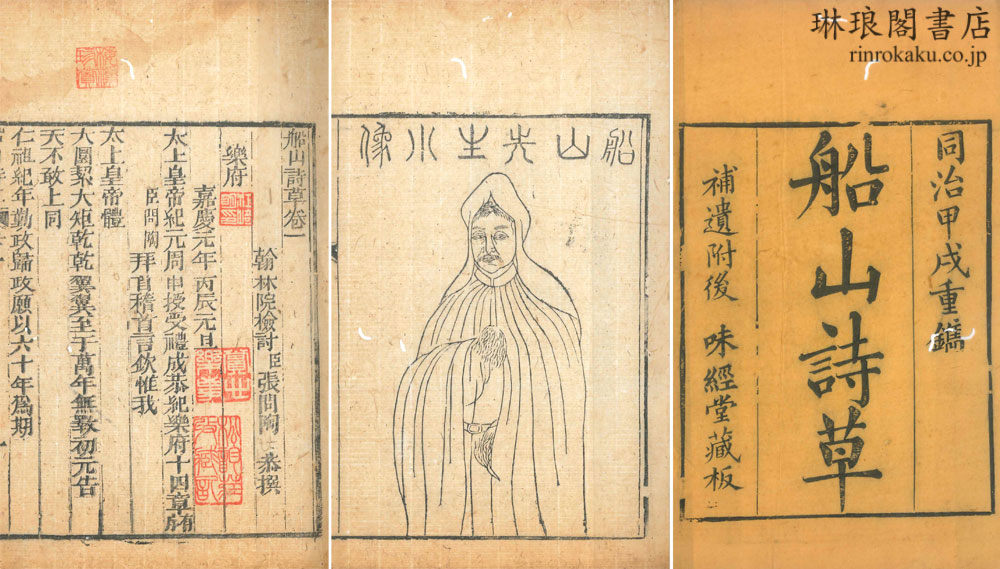 琳琅閣書店
rinrokaku.co.jp
同治甲戌重鐫
船山詩草
補遺附後 味經堂藏板
船山先生小像
船山詩草卷一
翰林院檢討臣張問陶恭撰
樂府
嘉慶元年丙辰元旦
太上皇帝紀元周甲授受禮成恭紀樂府十四章有
臣問陶拜首稽首言欽惟我
太上皇帝體
大圜絜大矩乾乾翼翼至于萬年無斁初元告
天不敢上同
仁祖紀年勤政歸政願以六十年為期